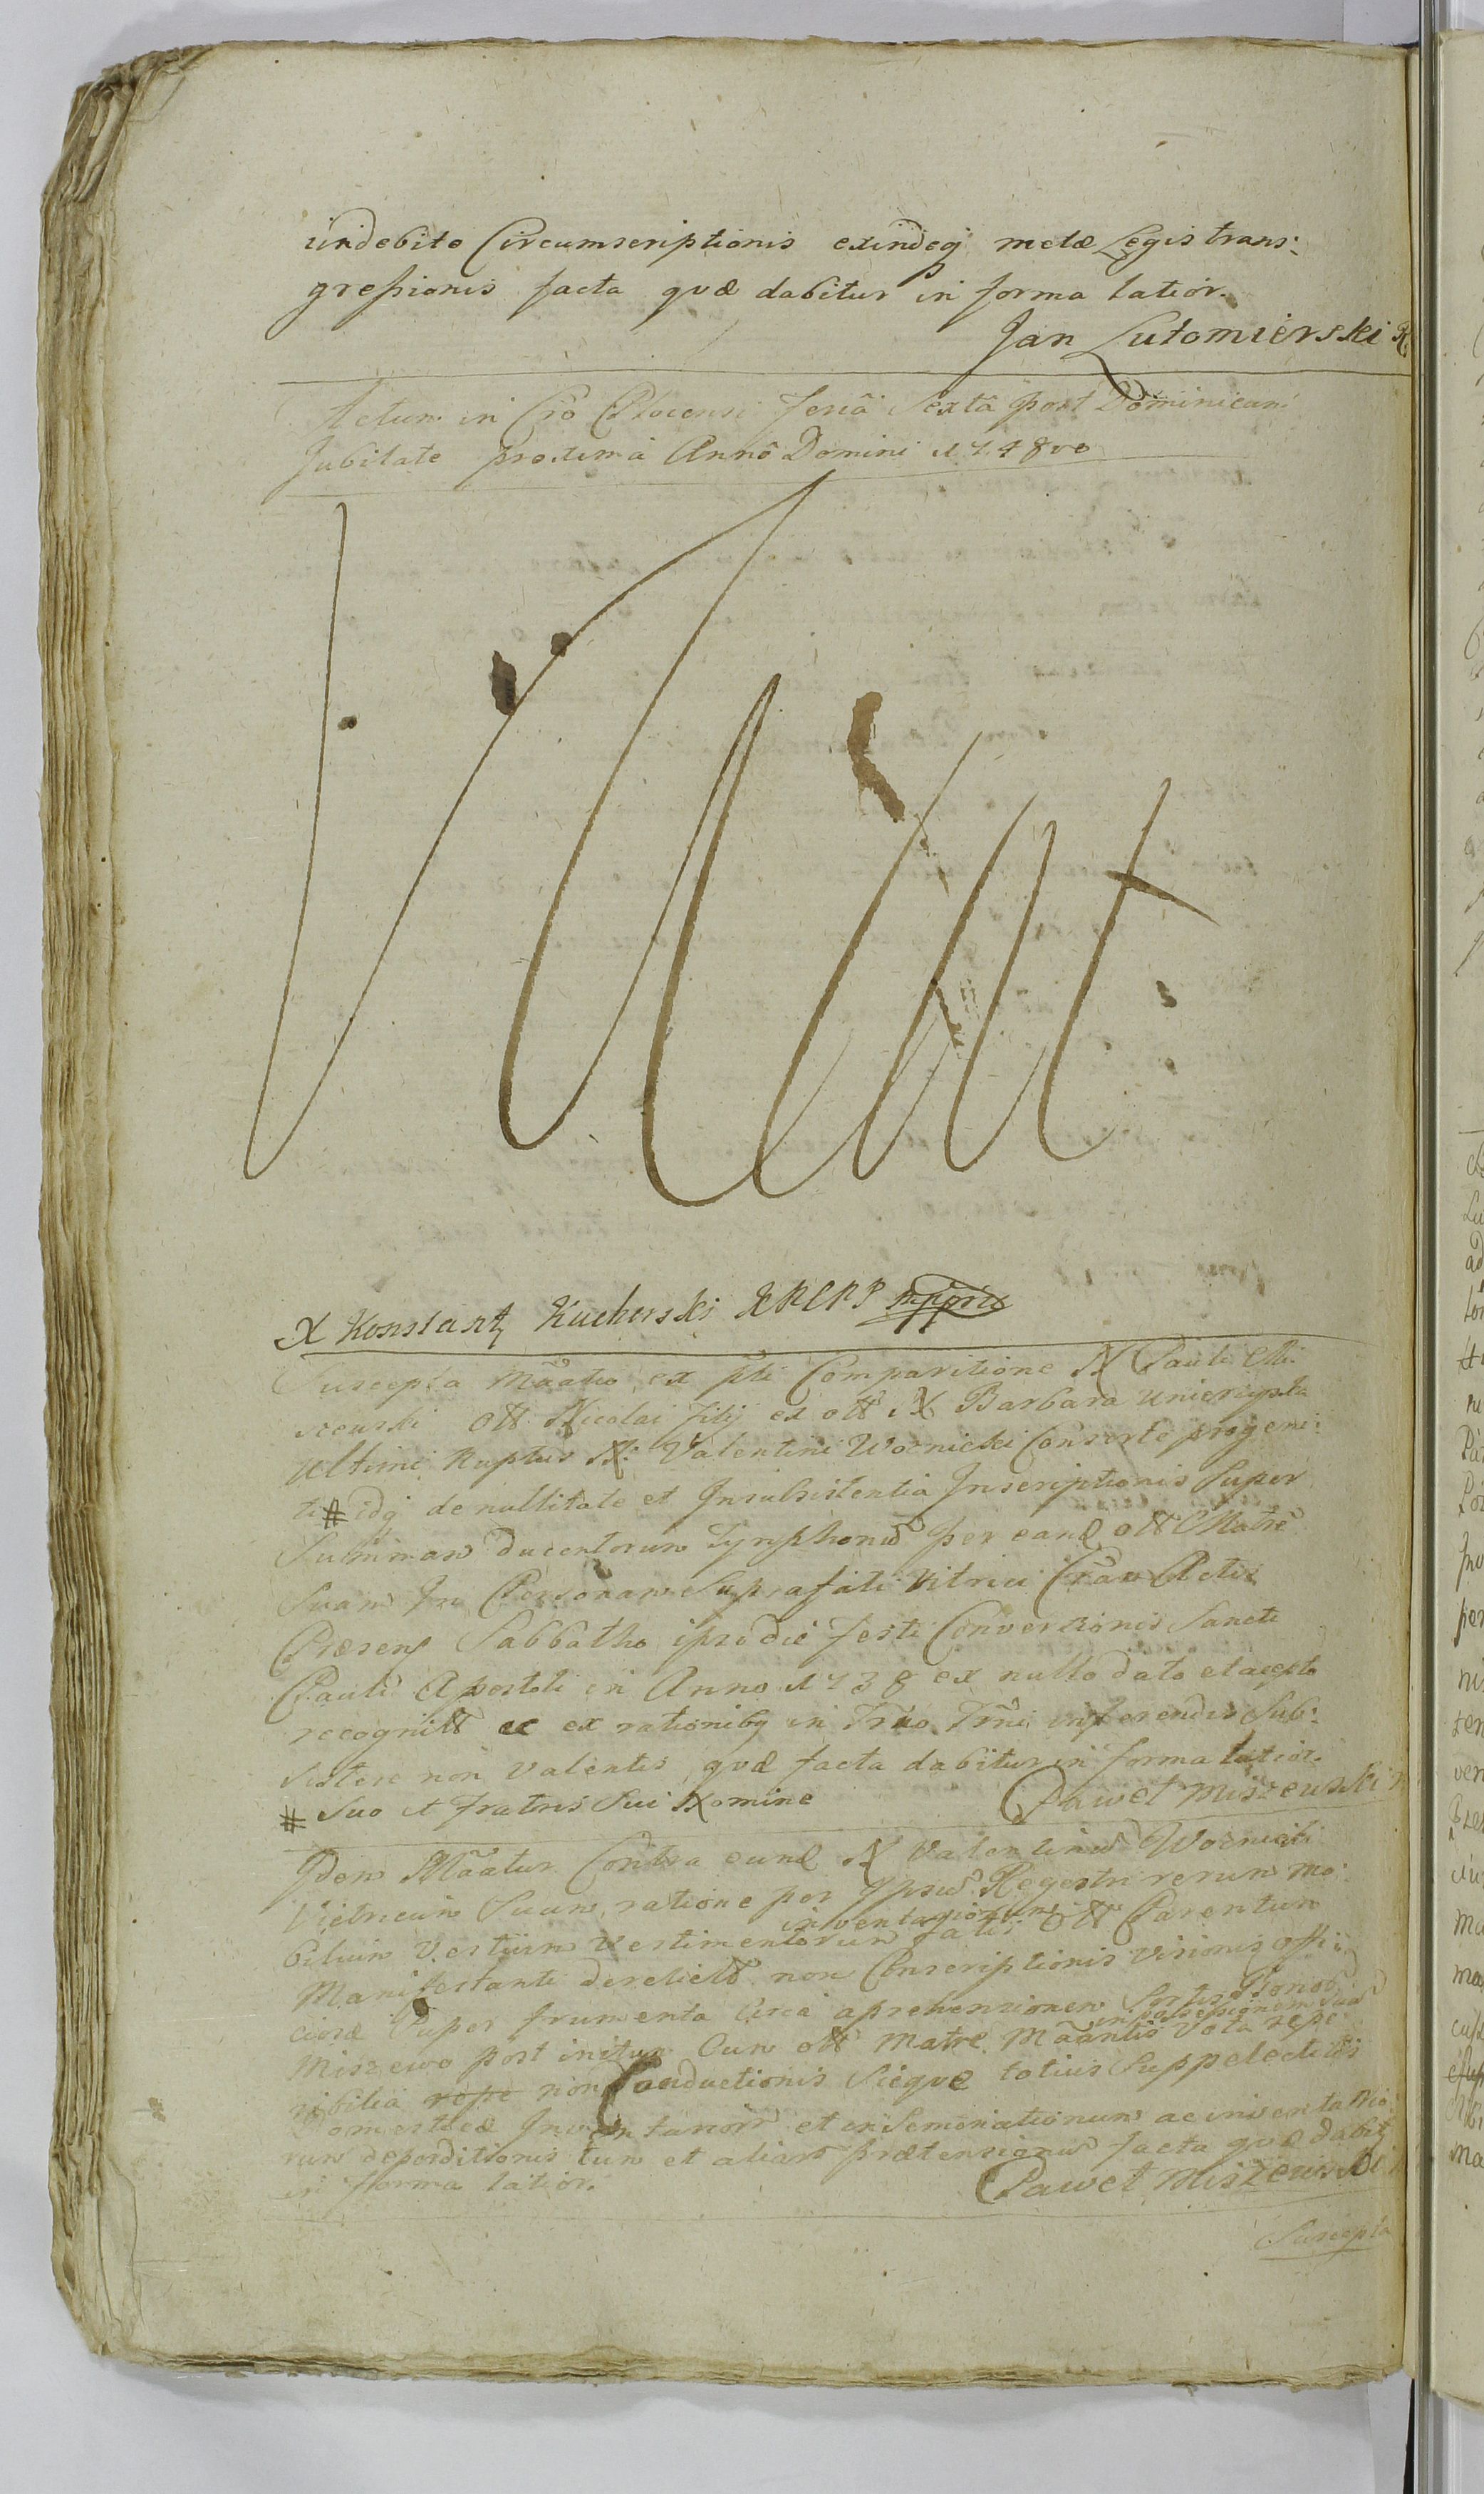 indebite Circumscriptionis exindeq metæ Legis trans:
greßionis facta quæ dabitur in forma latior.
Jan Lutomierski
Actum in Cro Plocensi feriâ Sextâ post Dominicam
Jubilate proximâ Annô Domini 1748vo
Vacat
X Konstanty Kucharski
Suscepta Mãatio, ex pti Comparitione N Pauli Mi:
szewski Olt Nicolai filij ex olt N Barbara
ultimi Ruptus N: Valentini Woznicki Consorte progeni:
ti # idq de nullitate et Insubsistentia Inscriptionis Super
Summam ducentorum Tynphonũ per eand olt Matre
Suam In Personam Suprafati Vitrici Coram Actis
Præsen Sabbatho ipso die festi Conversionis Sancti
Pauli Apostoli in Anno 1738 ex nullo dato et acepto
recognitt ac ex rationibq in Trno Trni inferendis Sub:
sistere non Valentis, quæ facta dabitur in forma latior.
# Suo et fratris Sui Nomine Pawel Miszewski
Idem Mãatur Contra eund N Valentinũ Woznicki
Vietricum Suum, ratione per Ipsũ Regestri rerum mo:
bilium Vestium Vestimentorum inventariorum fatis olt Parentum
Manifestanti derelict non Conscriptionis visionis offi:
ciosæ Super frumenta Circa aprehensionem Sortis Bonor
Miszewo post initum Cum olt Matre Mãantis in possessionem suã Vota repe:
ribilia repe non Conductionis Sicque totius Suppelectilis
Domesticæ Inventarior et inSeminationum ac inventario:
rum deperditionis tum et aliarũ prætensionũ facta quæ dabit
in forma latior.
Pawel Miszewski
Suscepta